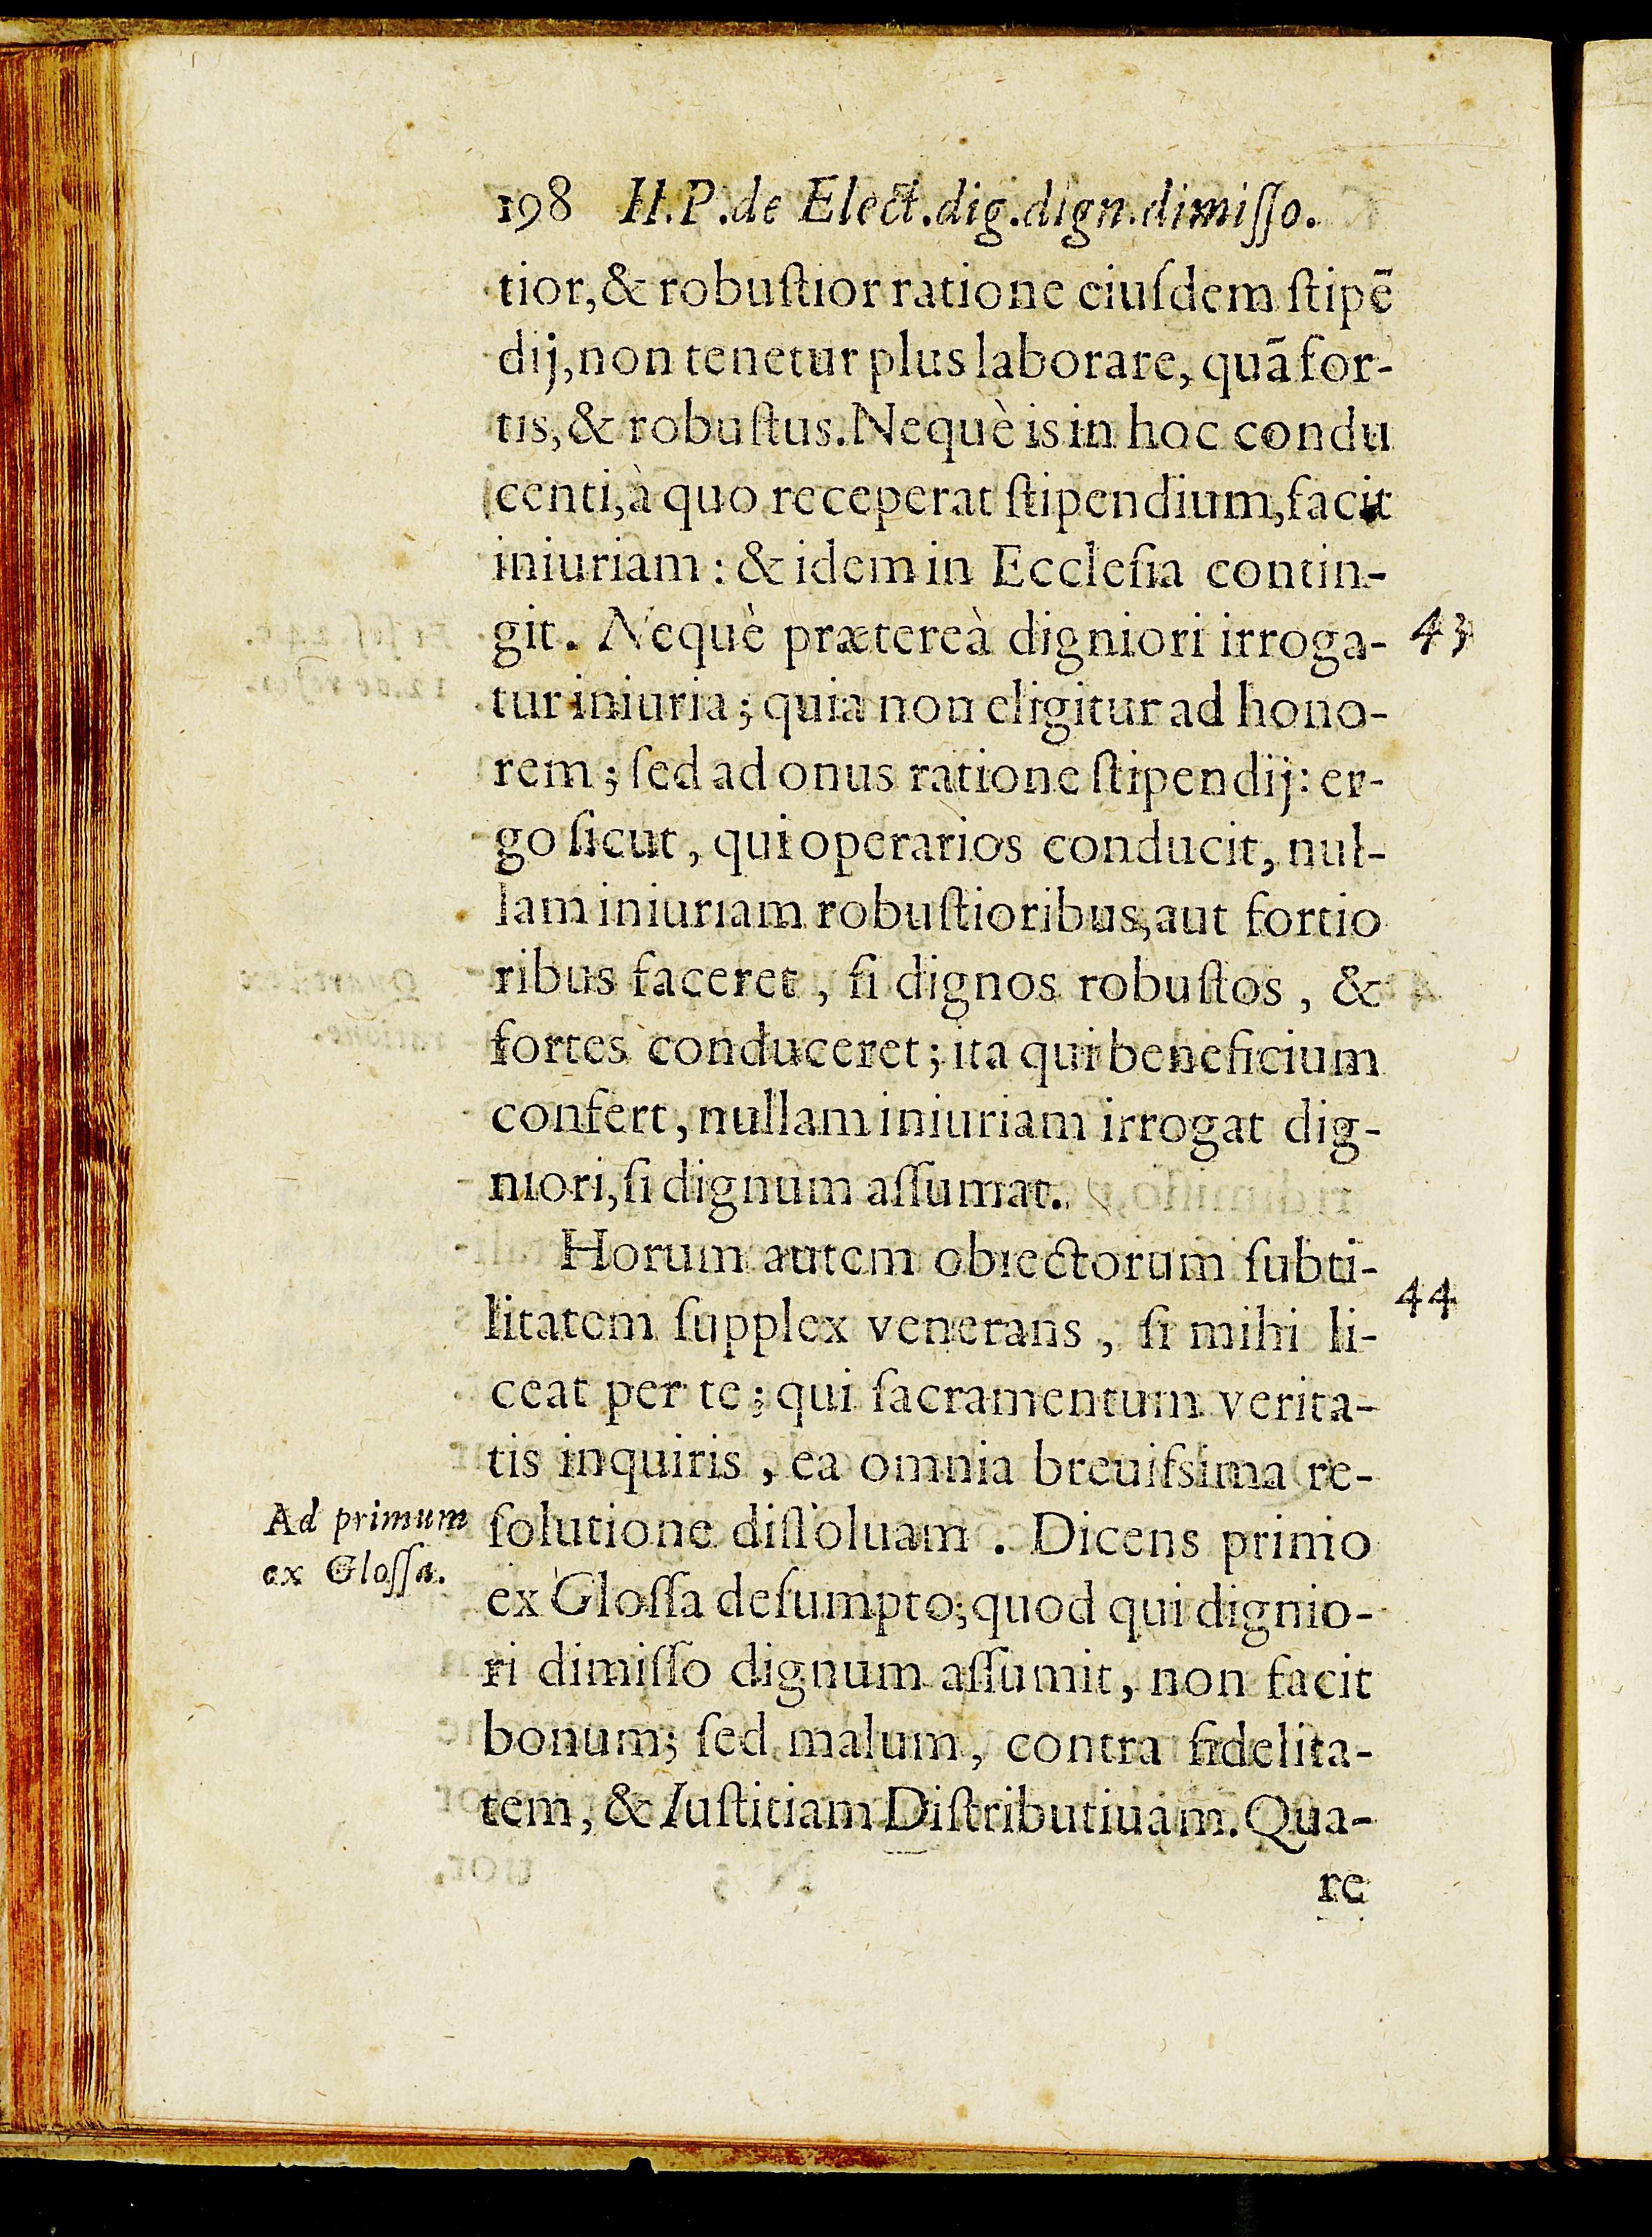 198 II.P.de Elect.dig.dign.dimiſſo.
tior,& robuſtior ratione eiuſdem ſtipē
dij,non tenetur plus laborare, quā for-
tis,& robuſtus. Nequè is in hoc condu
centi,à quo receperat ſtipendium,facit
iniuriam: & idem in Eccleſia contin-
git. Nequè prætereà digniori irroga- 43
tur iniuria; quia non eligitur ad hono-
rem; ſed ad onus ratione ſtipendij: er-
go ſicut, qui operarios conducit, nul-
lam iniuriam robuſtioribus,aut fortio
ribus faceret, ſi dignos robuſtos, &
fortes conduceret; ita qui beneficium
confert, nullam iniuriam irrogat dig-
niori,ſi dignum aſſumat.
Horum autem obiectorum ſubti-
44
litatem ſupplex venerans, ſi mihi li-
ceat per te; qui ſacramentum verita-
tis inquiris, ea omnia breuiſsima re-
Ad primum
ex Gloſſa.
ſolutione diſſoluam. Dicens primo
ex Gloſſa deſumpto; quod qui dignio-
ri dimiſſo dignum aſſumit, non facit
bonum; ſed malum, contra fidelita-
tem, & Iuſtitiam Diſtributiuam. Qua-
re